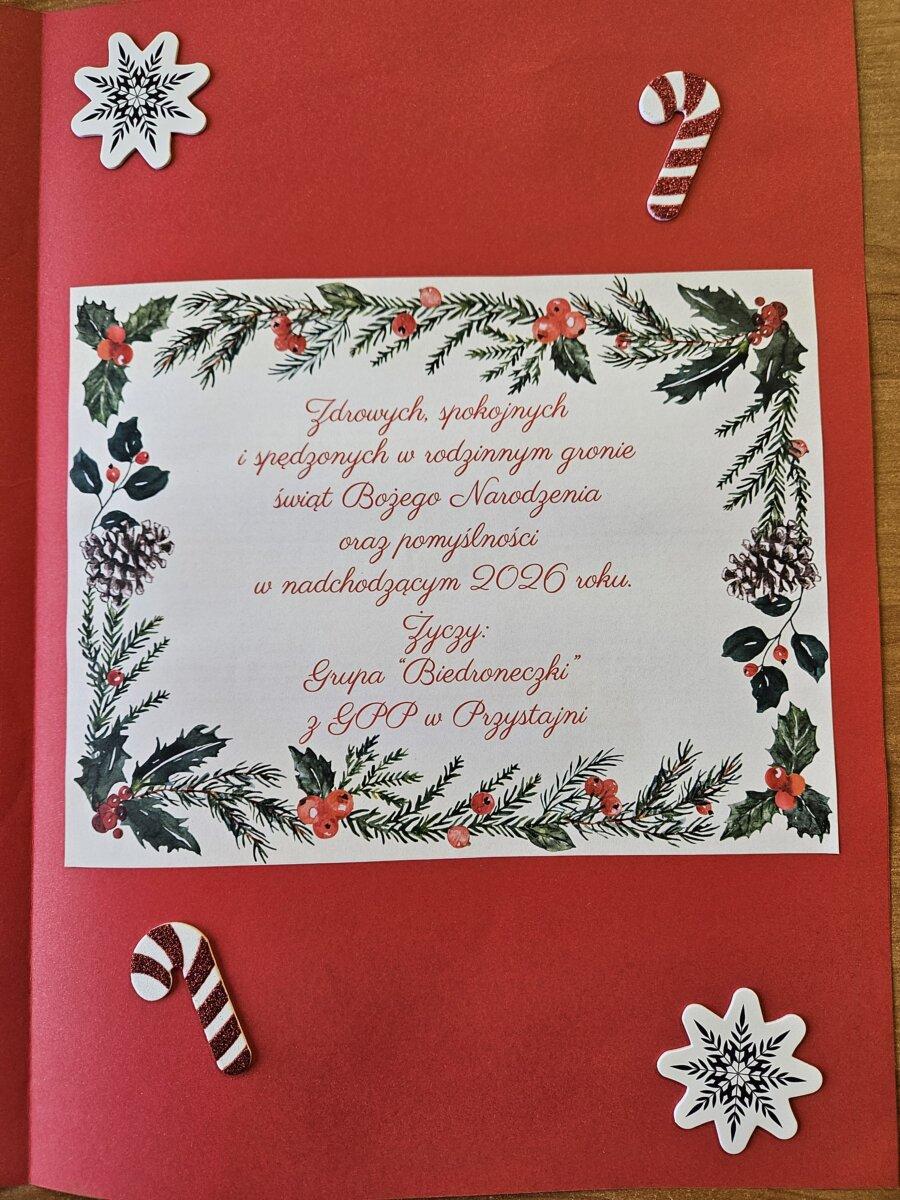 Zdrowych, spokojnych
i spędzonych w rodzinnym gronie
świąt Bożego Narodzenia
oraz pomyślności
w nadchodzącym 2026 roku.
Życzy:
Grupa “Biedroneczki”
z GPP w Przystajni